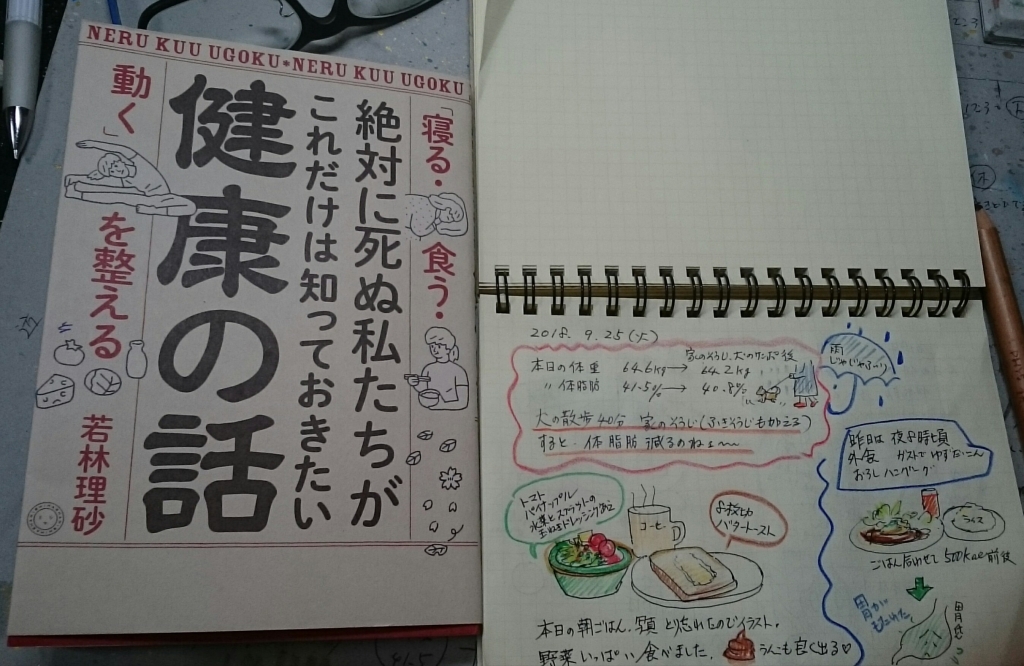 NERU KUU UGOKU*NERU KUU UGOKU
「寝る・食う・
動く」を整える
絶対に死ぬ私たちが
これだけは知っておきたい
健康の話
若林理砂
2018. 9. 25 (火)
家のそうじ、犬のサンポ後
本日の体重 64.6kg→ 64.2kg
〃 体脂肪 41.5%→ 40.8%
犬の散歩40分 家のそうじ(ふきそうじもかんたんに)
すると、体脂肪減るのねぇ〜
雨
じゃじゃぶり
昨日は夜8時頃
外食 ガストでゆずだいこん
おろしハンバーグ
ライス
ごはん合わせて500kcal前後
胃が
もたれた
トマト
パイナップル
水菜とスプラウトの
玉ねぎドレッシングあえ
コーヒー
バタートースト
本日の朝ごはん、写真とり忘れたのでイラスト。
野菜いっぱい食べました。
うんこも良く出る♡